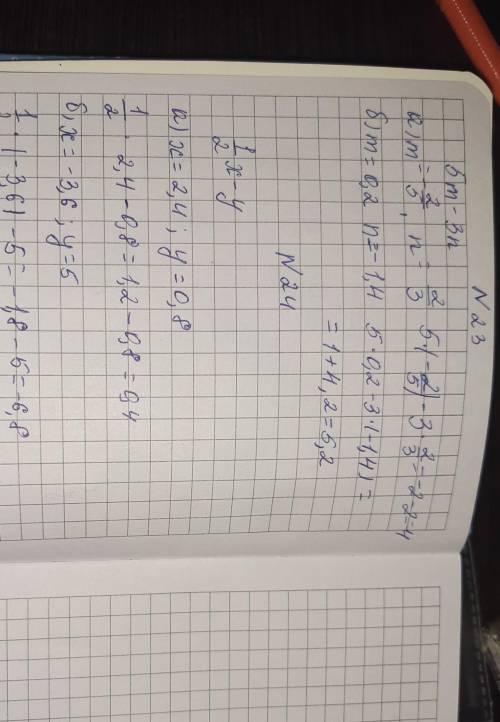 N23
5m-3n
а) m=-2/5, n=2/3 5(-2/5)-3·2/3=-2-2=-4
б) m=0,2 n=-1,4 5·0,2-3·(-1,4)=
=1+4,2=5,2
N24
1/2x-y
а) x=2,4; y=0,8
1/2·2,4-0,8=1,2-0,8=0,4
б) x=-3,6; y=5
1/2·(-3,6)-5=-1,8-5=-6,8